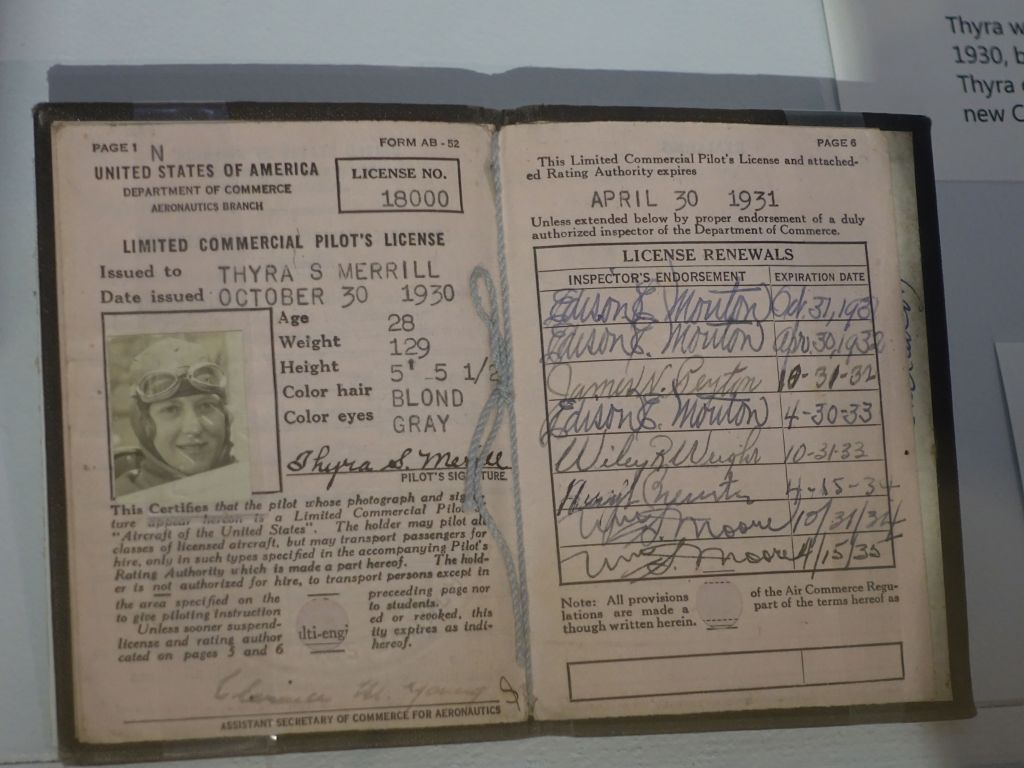 PAGE 1 N FORM AB - 52
UNITED STATES OF AMERICA
DEPARTMENT OF COMMERCE
AERONAUTICS BRANCH
LICENSE NO.
18000
LIMITED COMMERCIAL PILOT'S LICENSE
Issued to THYRA S MERRILL
Date issued OCTOBER 30 1930
Age 28
Weight 129
Height 5' 5 1/2
Color hair BLOND
Color eyes GRAY
Thyra S. Merrill
PILOT'S SIGNATURE
This Certifies that the pilot whose photograph and signa-
ture appear hereon is a Limited Commercial Pilot
"Aircraft of the United States". The holder may pilot all
classes of licensed aircraft, but may transport passengers for
hire, only in such types specified in the accompanying Pilot's
Rating Authority which is made a part hereof. The hold-
er is not authorized for hire, to transport persons except in
the area specified on the preceding page nor
to give piloting instruction to students.
Unless sooner suspend- ed or revoked, this
license and rating author ity expires as indi-
cated on pages 5 and 6 hereof.
ulti-engi
ASSISTANT SECRETARY OF COMMERCE FOR AERONAUTICS
PAGE 6
This Limited Commercial Pilot's License and attach-
ed Rating Authority expires
APRIL 30 1931
Unless extended below by proper endorsement of a duly
authorized inspector of the Department of Commerce.
LICENSE RENEWALS
INSPECTOR'S ENDORSEMENT EXPIRATION DATE
Edison E. Mouton Oct. 31, 193
Edison E. Mouton Apr. 30, 1932
James N. 10-31-32
Edison E. Mouton 4-30-33
Wiley R Wright 10-31-33
4-15-34
Wm S. Moore 10/31/34
Wm S. Moore 4/15/35
Note: All provisions of the Air Commerce Regu-
lations are made a part of the terms hereof as
though written herein.
Thyra w
1930, b
Thyra
new C